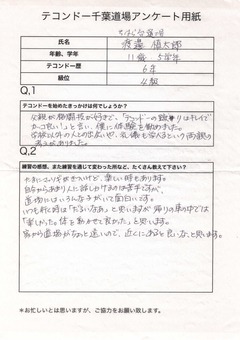 テコンドー千葉道場アンケート用紙
ちば台道場
氏名
渡邉 慎太郎
年齢、学年
11歳 5学年
テコンドー歴
6年
級位
4級
Q,1
テコンドーを始めたきっかけは何でしょうか?
父親が格闘技が好きで、「テコンドーの蹴りはキレイで
かっこ良い」と言い、僕に体験を勧めました。
学校以外の人との出会いや、礼儀も学べるという両親の
考えがありました。
Q,2
練習の感想、また練習を通じて変わった所など、たくさん教えて下さい?
たまにマッソギがきついけど、楽しい時もあります。
自分からあまり人に話しかけるのは苦手ですが、
道場にはいろんな子がいて面白いです。
いつも行く時は「だるいなぁ」と思いますが帰りの車の中では
「楽しかった。体を動かせて良かった」と思います。
家から道場がちょっと遠いので、近くにあると良いな、と思います。
*お忙しいとは思いますが、ご協力をお願い致します。